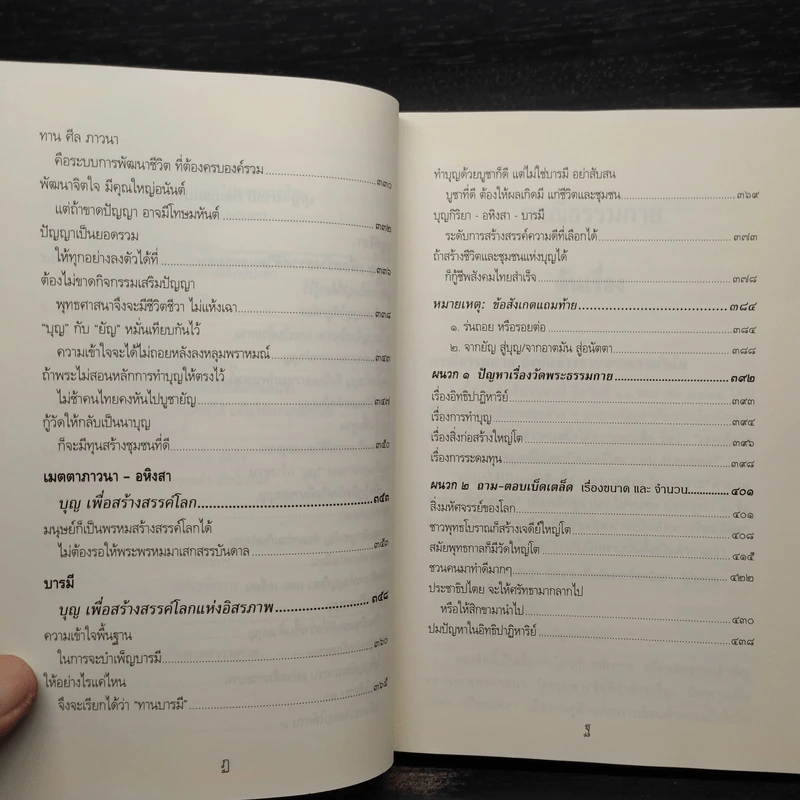 ทาน ศีล ภาวนา
คือระบบการพัฒนาชีวิต ที่ต้องครบองค์รวม ๓๓๐
พัฒนาจิตใจ มีคุณใหญ่อนันต์
แต่ถ้าขาดปัญญา อาจมีโทษมหันต์ ๓๓๒
ปัญญาเป็นยอดรวม
ให้ทุกอย่างลงตัวได้ที่ ๓๓๖
ต้องไม่ขาดกิจกรรมเสริมปัญญา
พุทธศาสนาจึงจะมีชีวิตชีวา ไม่แห้งเฉา ๓๓๘
“บุญ” กับ “ยัญ” หมั่นเทียบกันไว้
ความเข้าใจจะได้ไม่ถอยหลังลงหลุมพราหมณ์ ๓๔๓
ถ้าพระไม่สอนหลักการทำบุญให้ตรงไว้
ไม่ช้าคนไทยคงหันไปบูชายัญ ๓๔๗
กู้วัดให้กลับเป็นนาบุญ
ก็จะมีทุนสร้างชุมชนที่ดี ๓๕๐
เมตตาภาวนา - อหิงสา
บุญ เพื่อสร้างสรรค์โลก ๓๕๓
มนุษย์ก็เป็นพรหมสร้างสรรค์โลกได้
ไม่ต้องรอให้พระพรหมมาเสกสรรบันดาล ๓๕๓
บารมี
บุญ เพื่อสร้างสรรค์โลกแห่งอิสรภาพ ๓๕๘
ความเข้าใจพื้นฐาน
ในการจะบำเพ็ญบารมี ๓๖๐
ให้อย่างไรแค่ไหน
จึงจะเรียกได้ว่า “ทานบารมี” ๓๖๕
ฏ
ทำบุญด้วยบูชาก็ดี แต่ไม่ใช่บารมี อย่าสับสน
บูชาที่ดี ต้องให้ผลเกิดมี แก่ชีวิตและชุมชน ๓๖๙
บุญกิริยา - อหิงสา - บารมี
ระดับการสร้างสรรค์ความดีที่เลือกได้ ๓๗๓
ถ้าสร้างชีวิตและชุมชนแห่งบุญได้
ก็กู้ชีพสังคมไทยสำเร็จ ๓๗๘
หมายเหตุ: ข้อสังเกตแถมท้าย ๓๘๔
๑. ร่นถอย หรือรอยต่อ ๓๘๔
๒. จากยัญ สู่บุญ/จากอาตมัน สู่อนัตตา ๓๘๘
ผนวก ๑ ปัญหาเรื่องวัดพระธรรมกาย ๓๙๒
เรื่องอิทธิปาฏิหาริย์ ๓๙๓
เรื่องการทำบุญ ๓๙๔
เรื่องสิ่งก่อสร้างใหญ่โต ๓๙๖
เรื่องการระดมทุน ๓๙๘
ผนวก ๒ ถาม-ตอบเบ็ดเตล็ด เรื่องขนาด และ จำนวน ๔๐๑
สิ่งมหัศจรรย์ของโลก ๔๐๑
ชาวพุทธโบราณก็สร้างเจดีย์ใหญ่โต ๔๐๘
สมัยพุทธกาลก็มีวัดใหญ่โต ๔๑๕
ชวนคนมาทำดีมากๆ ๔๒๒
ประชาธิปไตย จะให้ศรัทธามากลากไป
หรือให้สิกขามานำไป ๔๓๐
ปมปัญหาในอิทธิปาฏิหาริย์ ๔๓๘
ฐ